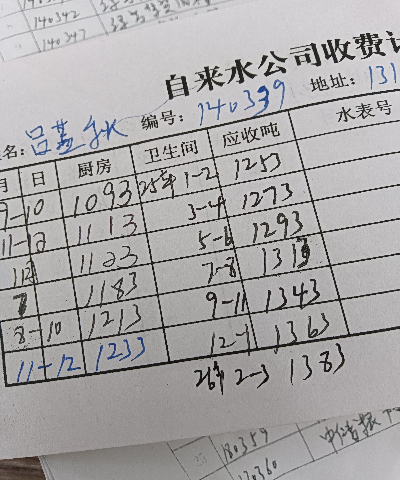 140342
140347
自来水公司收费
名: 吕 编号: 140339 地址: 131
月 日 厨房 卫生间 应收吨 水表号
9-10 1093 25年 1-2 1253
11-12 1113 3-4 1273
1123 5-6 1293
1183 7-8 1313
8-10 1213 9-11 1343
11-12 1233 12-1 1363
26年 2-3 1383
180359
120360